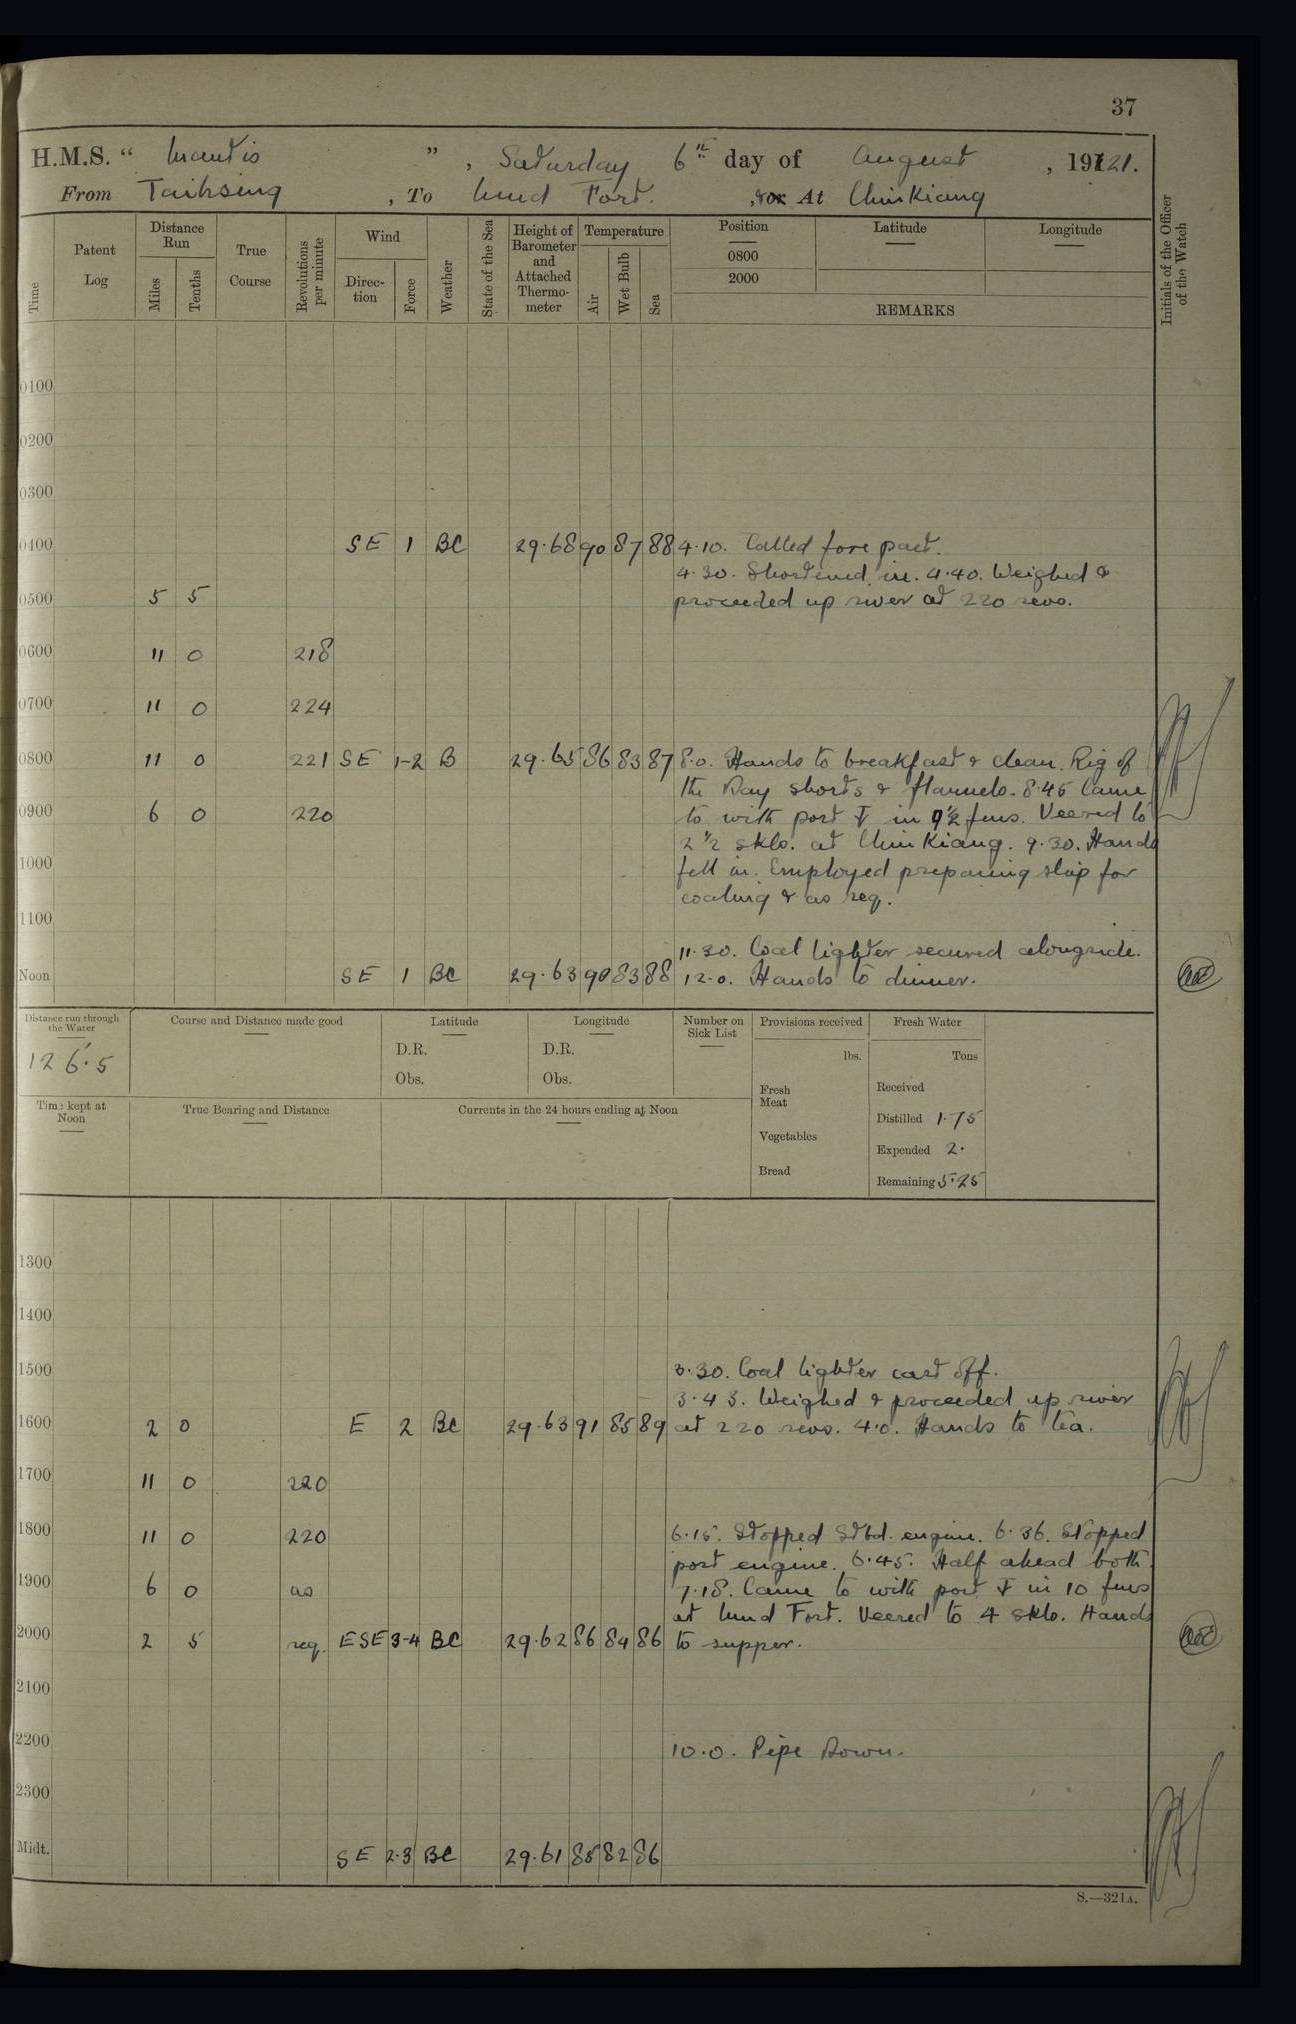 37
H.M.S. “ Mantis ” , Saturday 6th day of August , 1921.
From Taihsing , To Mud Fort. , or At ChinKiang
Time Patent Log Distance Run Miles Tenths True Course Revolutions per minute Wind Direction Force Weather State of the Sea Height of Barometer and Attached Thermometer Temperature Air Wet Bulb Sea Position 0800 2000 Latitude Longitude REMARKS Initials of the Officer of the Watch
0100
0200
0300
0400 SE 1 BC 29.68 90 87 88 4.10. Called fore part.
4.30. Shortened in. 4.40. Weighed &
0500 5 5 proceeded up river at 220 revs.
0600 11 0 218
0700 11 0 224
0800 11 0 221 SE 1-2 B 29.65 86 83 87 8.0. Hands to breakfast & clean. Rig of
the Day shorts & flannels. 8.45 Came
0900 6 0 220 to with port ⚓ in 9½ fms. Veered to
2½ skls. at ChinKiang. 9.30. Hands
1000 fell in. Employed preparing ship for
coaling & as req.
1100
11.30. Coal lighter secured alongside.
Noon SE 1 BC 29.63 90 83 88 12.0. Hands to dinner.
Distance run through the Water Course and Distance made good Latitude Longitude Number on Sick List Provisions received Fresh Water
126.5 D.R. D.R. lbs. Tons
Obs. Obs. Fresh Meat Received
Time kept at Noon True Bearing and Distance Currents in the 24 hours ending at Noon
Distilled 1.75
Vegetables Expended 2.
Bread Remaining 5.25
1300
1400
1500 3.30. Coal lighter cast off.
3.43. Weighed & proceeded up river
1600 2 0 E 2 BC 29.63 91 85 89 at 220 revs. 4.0. Hands to tea.
1700 11 0 220
1800 11 0 220 6.15. Stopped Stbd. engine. 6.36. Stopped
port engine. 6.45. Half ahead both.
1900 6 0 as 7.18. Came to with port ⚓ in 10 fms
at Mud Fort. Veered to 4 skls. Hands
2000 2 5 req. ESE 3-4 BC 29.62 86 84 86 to supper.
2100
2200 10.0. Pipe Down.
2300
Midt. SE 2.3 BC 29.61 85 82 86
S.—321A.